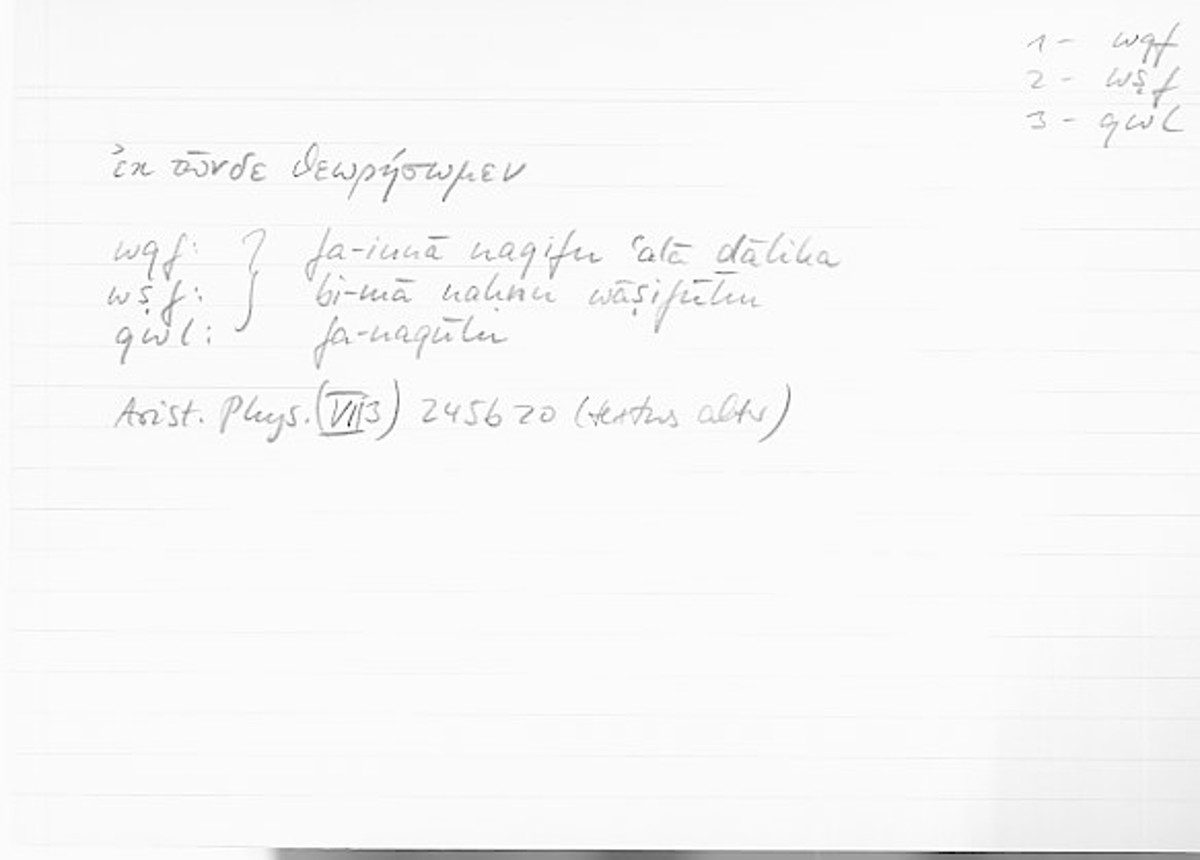 1 - wqf
2 - wṣf
3 - qwl
ἐκ τῶνδε θεωρήσωμεν
wqf: } fa-innā naqifu ʿalā ḏālika
wṣf: } bi-mā naḥnu wāṣifūhu
qwl: fa-naqūlu
Arist. Phys. (VII 3) 245b20 (textus alter)